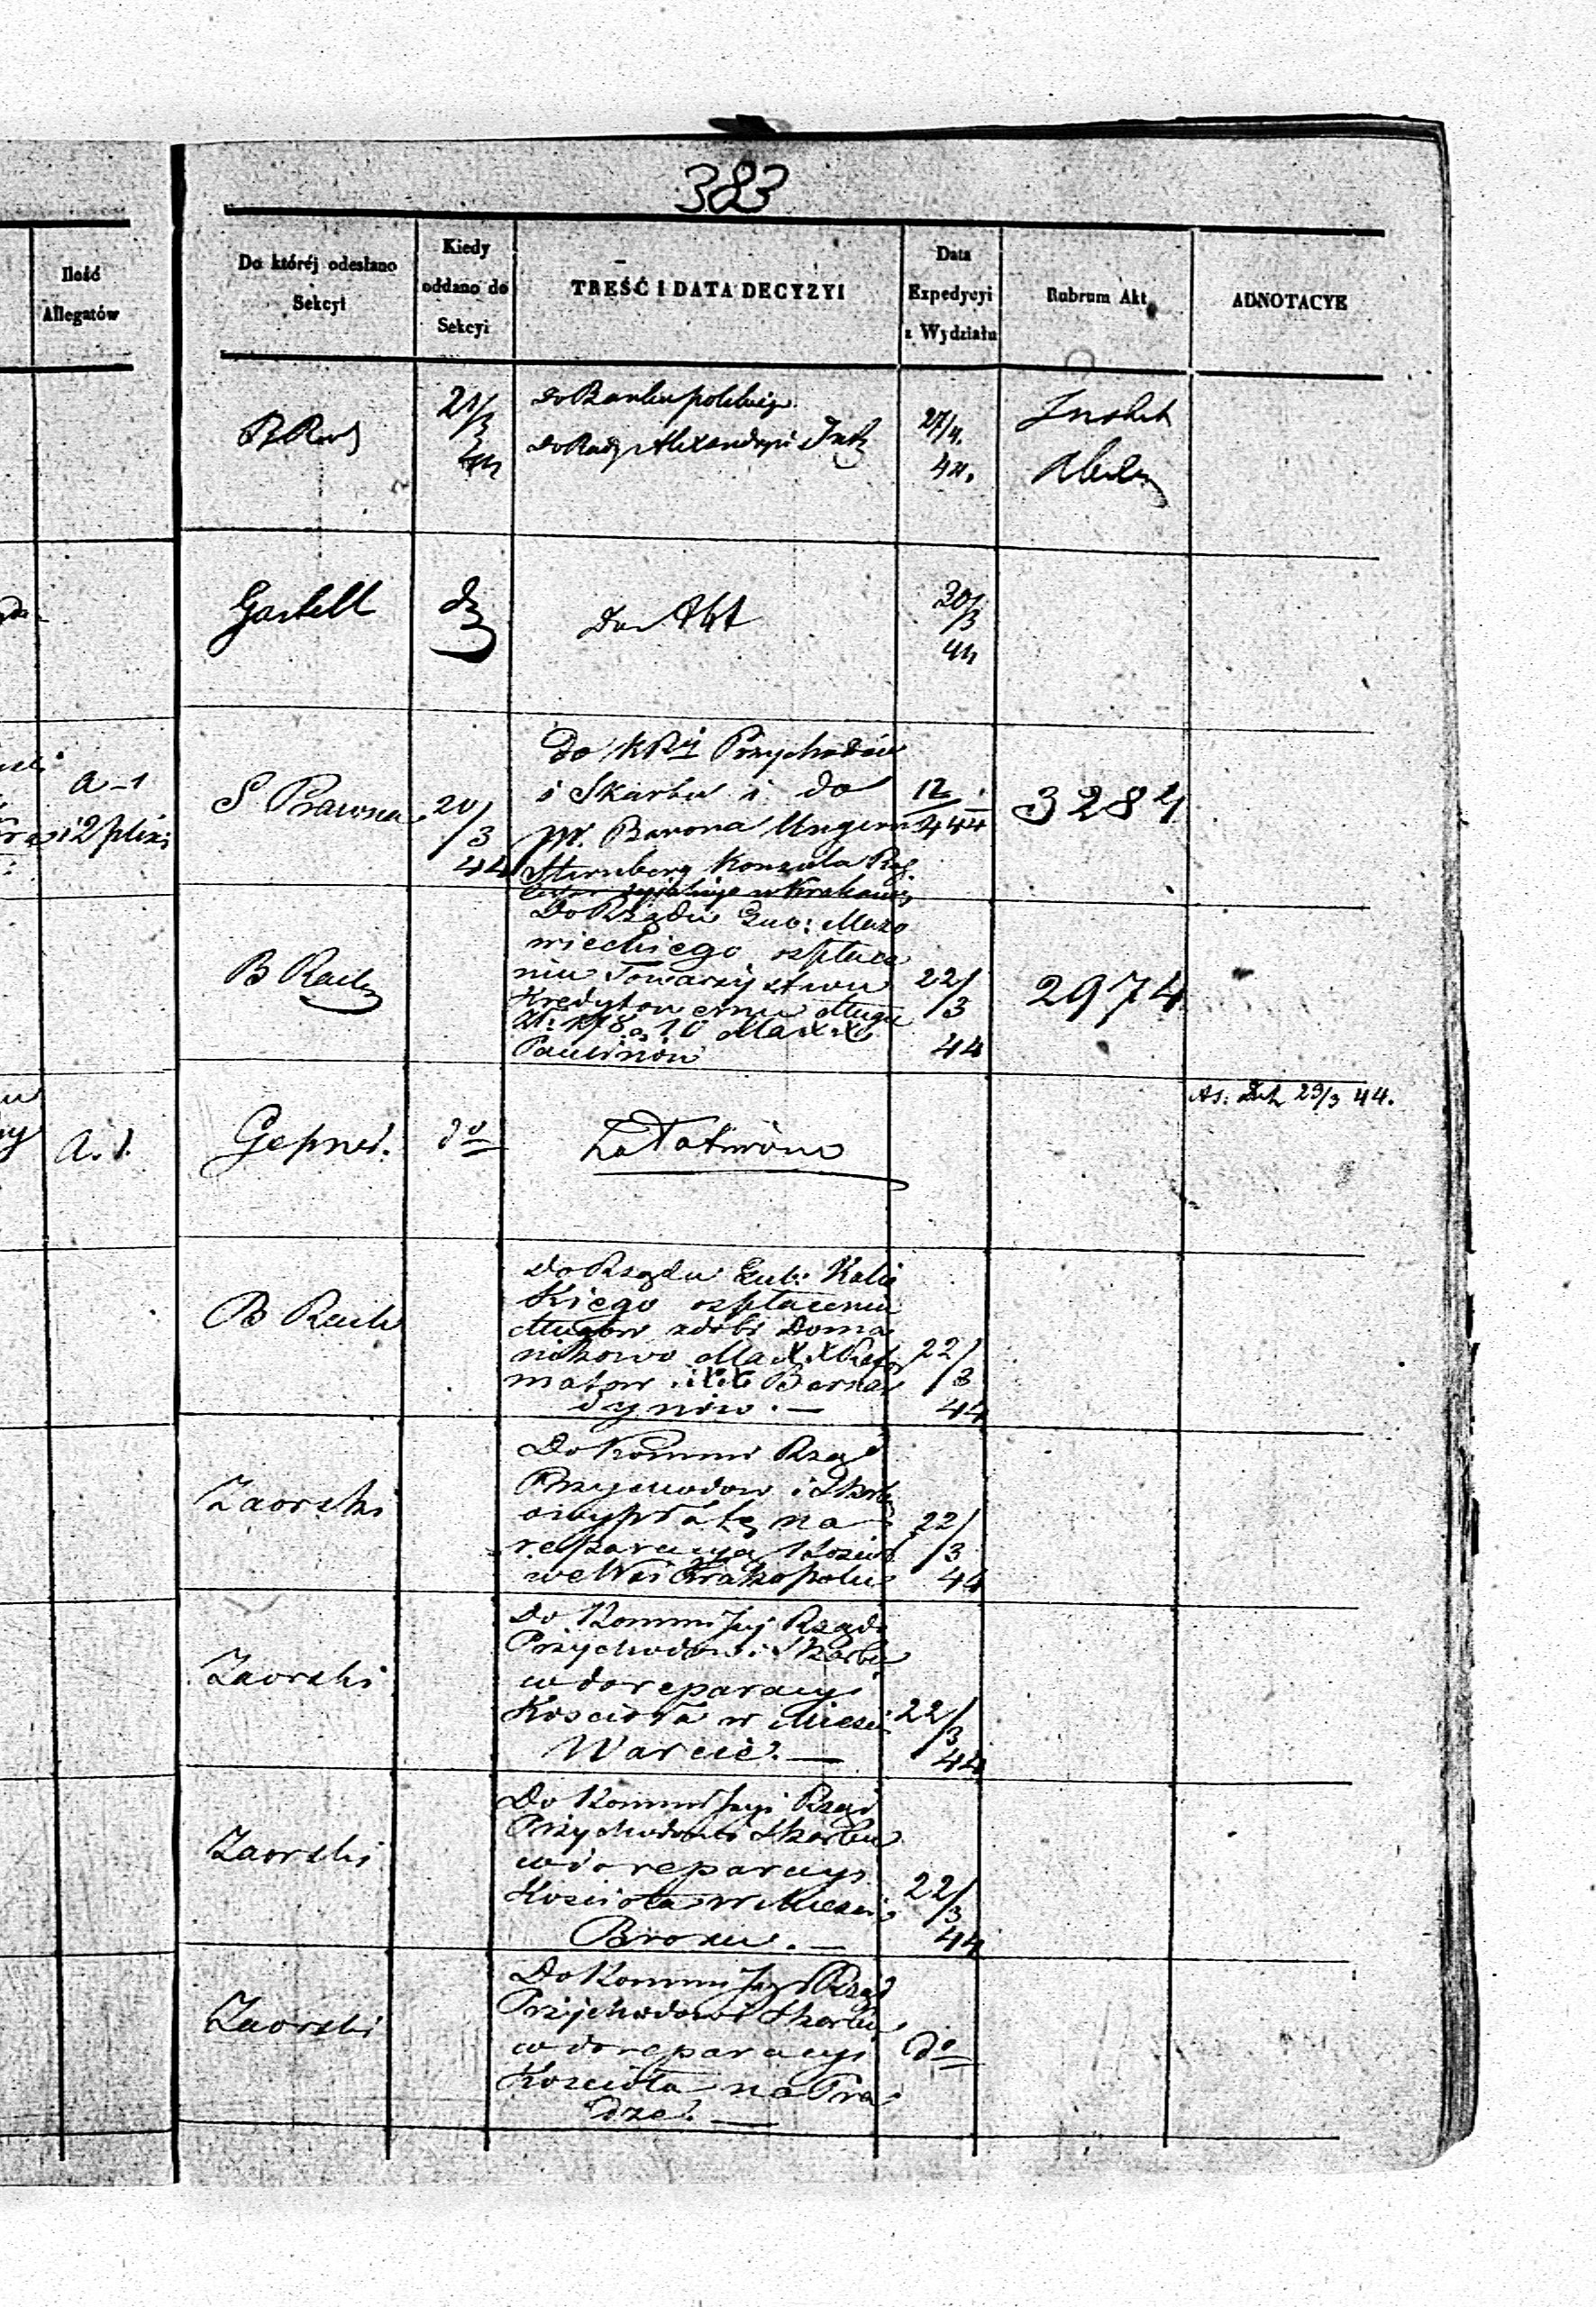 383
Ilość
Allegatów
Do któréj odesłano
Sekcyi
Kiedy
oddano do
Sekcyi
TREŚĆ I DATA DECYZYI
Data
Expedycyi
z Wydziału
Rubrum Akt
ADNOTACYE
21/3
do Banku polskiego
do Rady Alexandryi Inst
27/4.
44.
Instit
Do Akt
30/3
44
a-1
i 2 plixi
S Prawna
20/3
44
Do KRz Przychodów
i Skarbu i do
pp. Barona Ungern
Sternberg Konsula
w Krakowie
12
444
3284
B Rach
Do Rządu Gub: Mazo
wieckiego o spłace
niu Towarzystwu
Kredytowemu długu
Zł: 178 g 10 dla XX
Paulinów
22/3
44
2974
A. 1.
Gepner.
do
Załatwione
23/3 44.
B Rach
Do Rządu Gub: Kalis
kiego o spłaceniu
długów z dóbr Doma
nikowo dla XX Refor
matow i XX Bernar
dynów. —
22/3
44
Zaorski
Do Kommi Rząd
Przychodow i Skarbu
o wypłatę na
reparacyą Kościoł
we Wsi Krakopolu
22/3
44
Zaorski
Do Kommissyi Rządo
Przychodow i Skarbu
wdo reparacyi
Kościoła w Mieście
Warcie. —
22/3
44
Zaorski
Do Kommissyi Rząd
Przychodow i Skarbu
wdo reparacyi
Kościoła w Mieście
Broku. —
22/3
44
Zaorski
Do Kommissyi Rząd
Przychodow i Skarbu
wdo reparacyi
Kościoła na Pra
dze. —
do